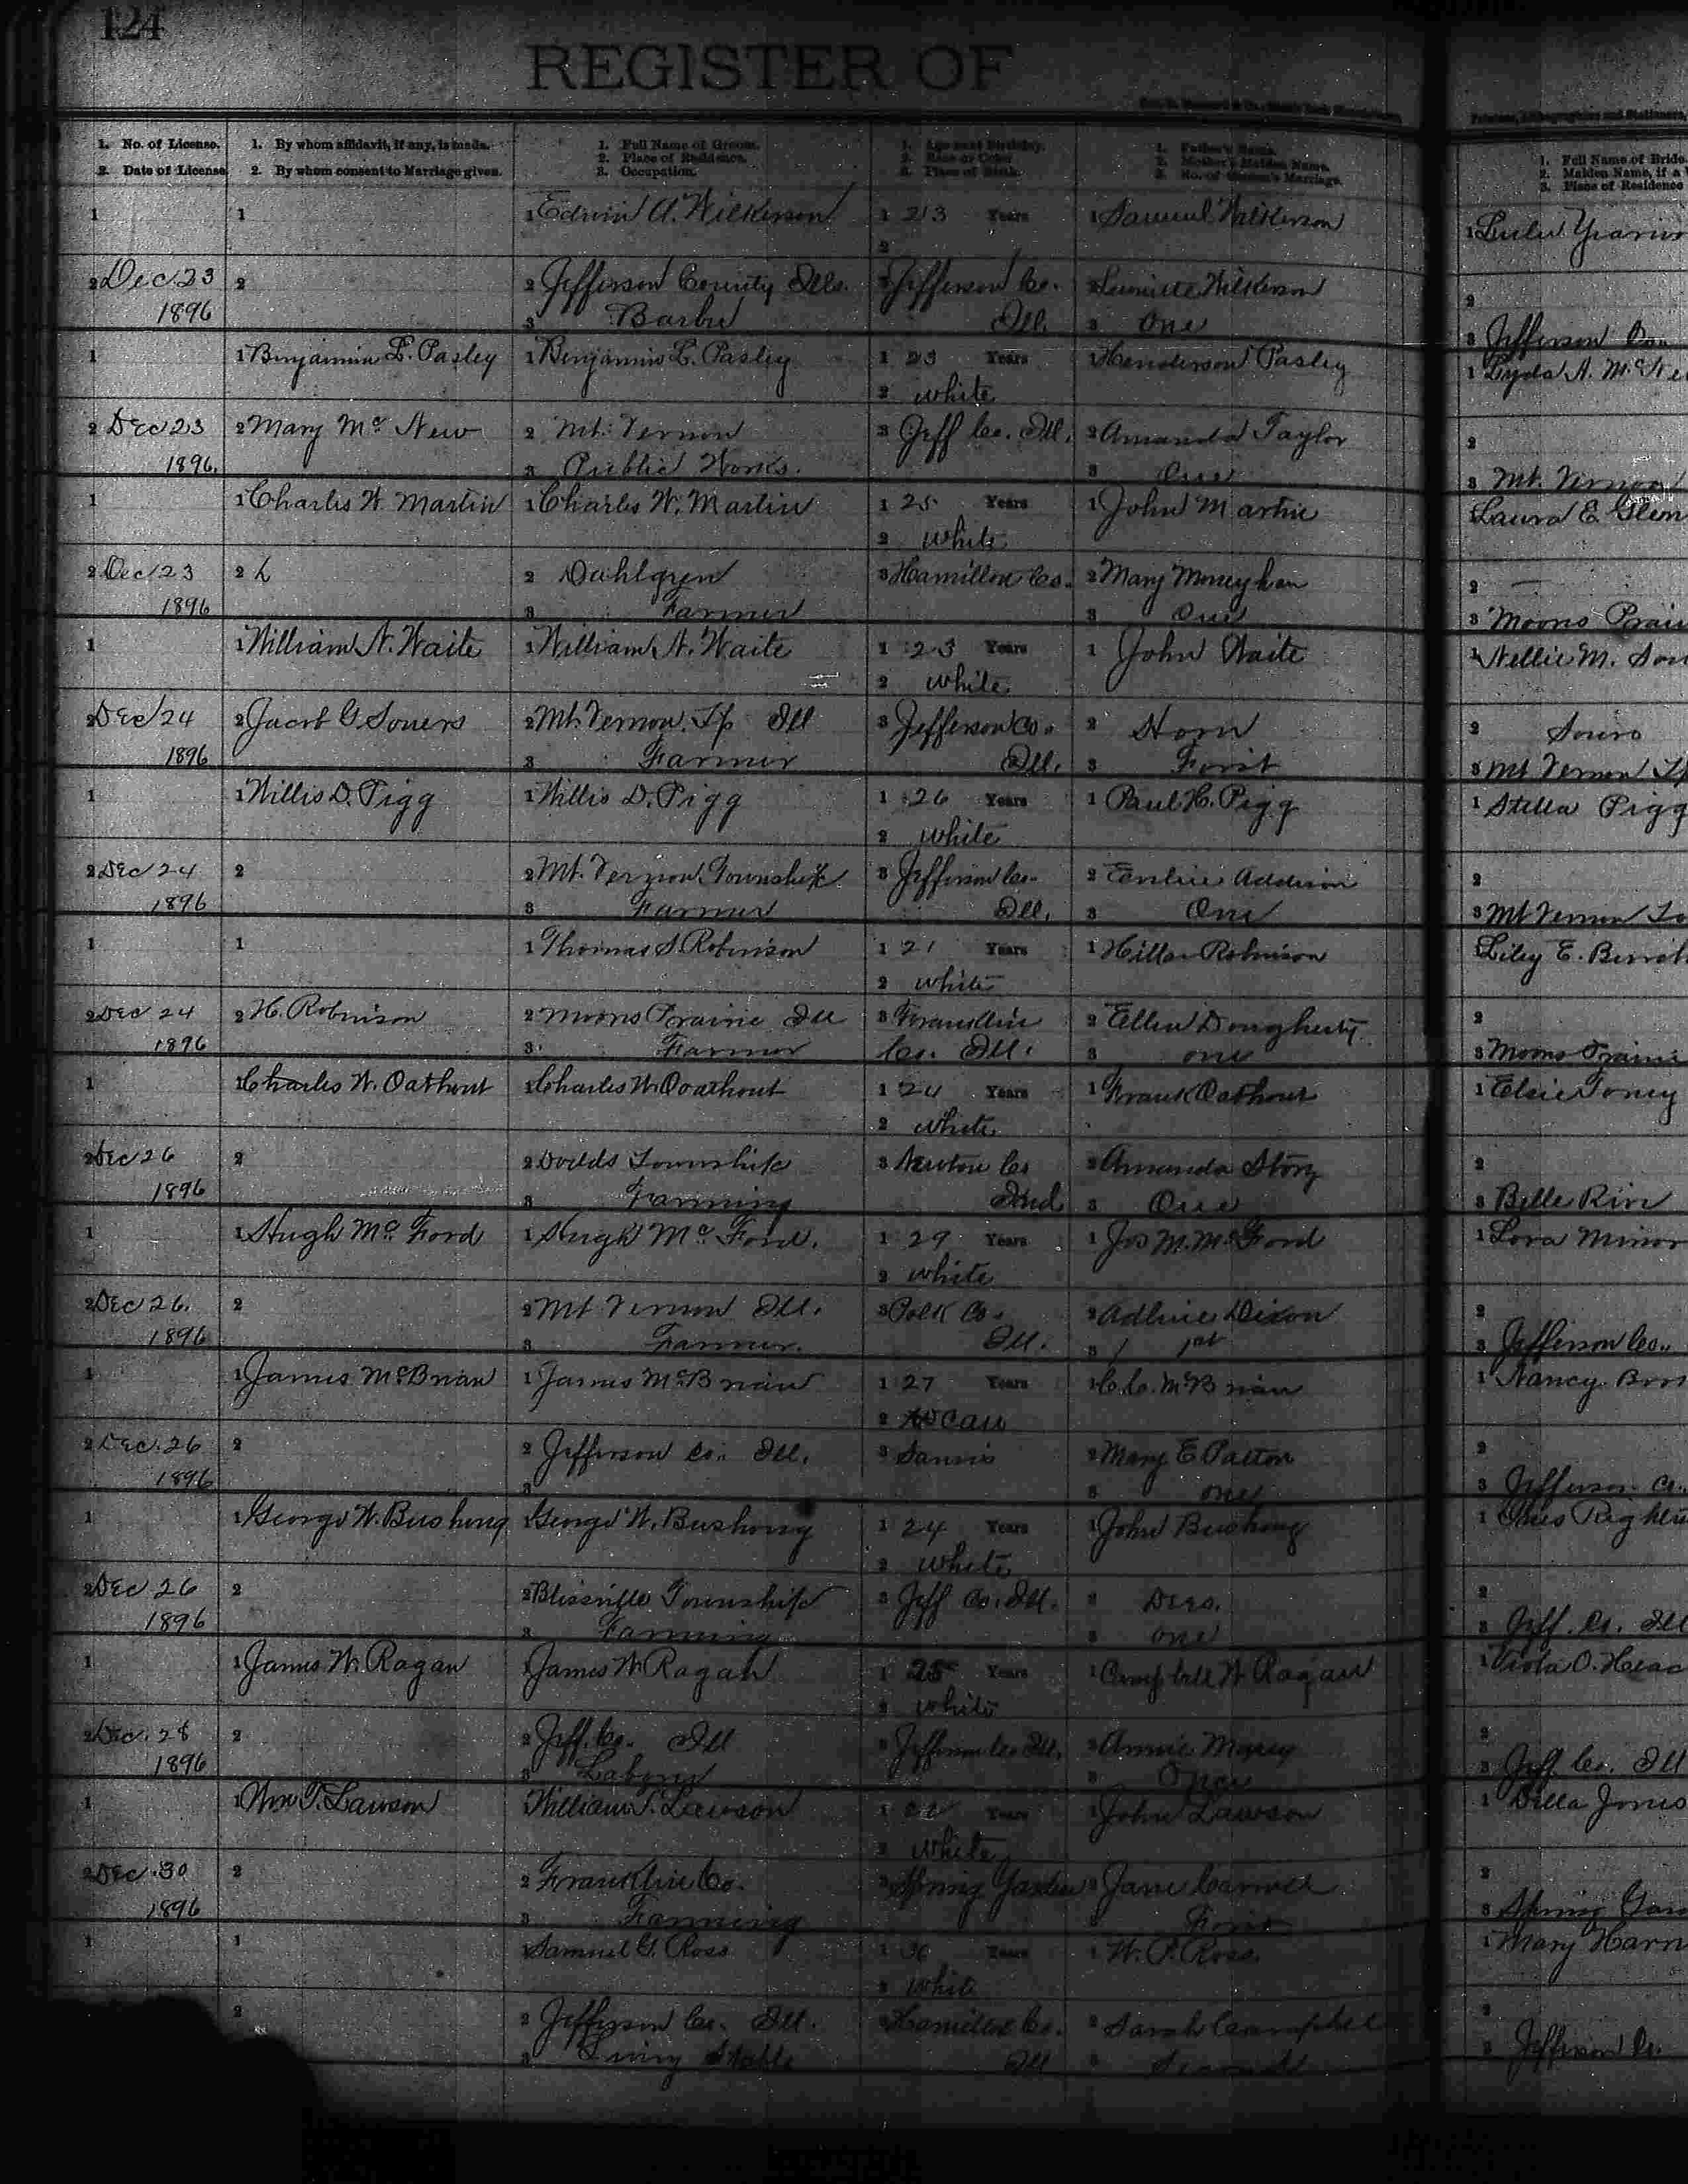 124
REGISTER OF
1. No. of License.
2. Date of License
1. By whom affidavit, if any, is made.
2. By whom consent to Marriage given.
1. Full Name of Groom.
2. Place of Residence.
3. Occupation.
1. Age next Birthday.
2. Race or Color
3. Place of Birth.
1. Father's Name.
2. Mother's Maiden Name.
3. No. of Groom's Marriage.
1. Full Name of Bride.
2. Maiden Name, if a
3. Place of Residence
1 1 1 Edwin A. Wilkerson 1 23 Years 1 Samuel Wilkerson 1 Lulu
2 Dec 23 2 2 Jefferson County Ills. 3 Jefferson Co. 2 Wilkerson 2
1896 3 Barber Ill. 3 One 3 Jefferson Co.
1 1 Benjamin L. Pasley 1 Benjamin L. Pasley 1 23 Years 1 Henderson Pasley 1 Lyda A. McNe
2 white
2 Dec 23 2 Mary McNew 2 Mt. Vernon 3 Jeff Co. Ill. 2 Amanda Taylor 2
1896. 3 Public Works. 3 One 3 Mt. Vernon
1 1 Charles W. Martin 1 Charles W. Martin 1 25 Years 1 John Martin 1 Laura E. Glen
2 white
2 Dec 23 2 2 Dahlgren 3 Hamilton Co. 2 Mary 2
1896 3 Farmer 3 One 3 Moores Prair
1 1 William N. Waite 1 William N. Waite 1 23 Years 1 John Waite 1 Nellie M. Sou
2 white
2 Dec 24 2 Jacob G Souers 2 Mt. Vernon, Tp Ill 3 Jefferson Co. 2 Horn 2
1896 3 Farmer Ill. 3 First 3 Mt Vernon Tp
1 1 Willis D. Pigg 1 Willis D. Pigg 1 26 Years 1 Paul H. Pigg 1 Stella Pigg
2 white
2 Dec 24 2 2 Mt. Vernon Township 3 Jefferson Co. 2 Addison 2
1896 3 Farmer Ill. 3 One 3 Mt Vernon To
1 1 1 Thomas S. Robinson 1 21 Years 1 Robinson 1 Lily E.
2 white
2 Dec 24 2 H. Robinson 2 Moores Prairie Ill 3 Franklin 2 Ellen Dougherty 2
1896 3 Farmer Co. Ill. 3 one 3 Moores Prairie
1 1 Charles W. Oathout 1 Charles W. Oathout 1 24 Years 1 Frank Oathout 1 Elsie Toney
2 white
2 Dec 26 2 2 Dodds Township 3 Newton Co 2 Amanda Story 2
1896 3 Farming Ind. 3 One 3 Belle Rive
1 1 Hugh McFord 1 Hugh McFord. 1 29 Years 1 Jos M. McFord 1 Lora Minor
2 white
2 Dec 26. 2 2 Mt Vernon Ill. 3 Polk Co. 2 Adline Dixon 2
1896 3 Farmer. Ill. 3 1 1st 3 Jefferson Co.
1 1 James McBrian 1 James McBrian 1 27 Years 1 C.C. McBrian 1 Nancy
2 Cau
2 Dec. 26 2 2 Jefferson Co. Ill. 3 2 Mary E Patton 2
1896 3 3 one 3 Jefferson Co.
1 1 George W. Bushong 1 George W. Bushong 1 24 Years 1 John Bushong 1
2 white
2 Dec 26 2 2 Blissville Township 3 Jeff Co. Ill. 2 2
1896 3 Farming 3 one 3 Jeff. Co. Ill
1 1 James W. Ragan 1 James W Ragan 1 25 Years 1 Campbell W Ragan 1 Viola O.
2 white
2 Dec. 28 2 2 Jeff. Co. Ill 3 Jefferson Co. Ill. 2 Annie 2
1896 3 Laborer 3 3 Jeff. Co. Ill
1 1 Wm T. Lawson 1 William T. Lawson 1 Years 1 John Lawson 1 Della Jones
2 white
2 Dec. 30 2 2 Franklin Co. 3 Spring Garden 2 Jane 2
1896 3 Farming 3 First 3 Spring Gar
1 1 1 Samuel G. Ross 1 Years 1 W. P. Ross 1 Mary Harn
2 White
2 2 Jefferson Co. Ill. 3 Hamilton Co. 2 Sarah Campbell 2
3 Livery Stable Ill 3 Second 3 Jefferson Co.